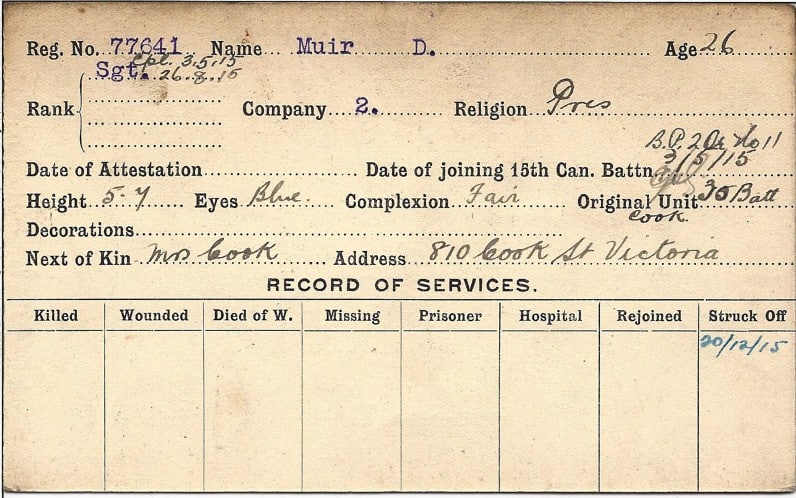 Reg. No. 77641 Name Muir D. Age 26
Cpl. 3.5.15
Sgt. 26.8.15
Rank Company 2. Religion Pres
B.P. 2 Or No 11
Date of Attestation Date of joining 15th Can. Battn. 3/5/15
Height 5-7 Eyes Blue. Complexion Fair Original Unit 30 Batt
Cook
Decorations
Next of Kin Mrs Cook Address 810 Cook St Victoria
RECORD OF SERVICES.
Killed Wounded Died of W. Missing Prisoner Hospital Rejoined Struck Off
20/12/15